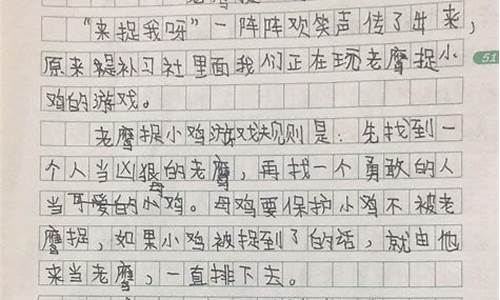 “来捉我呀”一阵阵欢笑声传了出来，
原来是补习社里面我们正在玩老鹰捉小
51
鸡的游戏。
老鹰捉小鸡游戏规则是：先找到一
个人当凶狠的老鹰，再找一个勇敢的人
母
当可爱的小鸡。母鸡要保护小鸡不被老
鹰捉，如果小鸡被捉到了的话，就由他
来当老鹰，一直排下去。